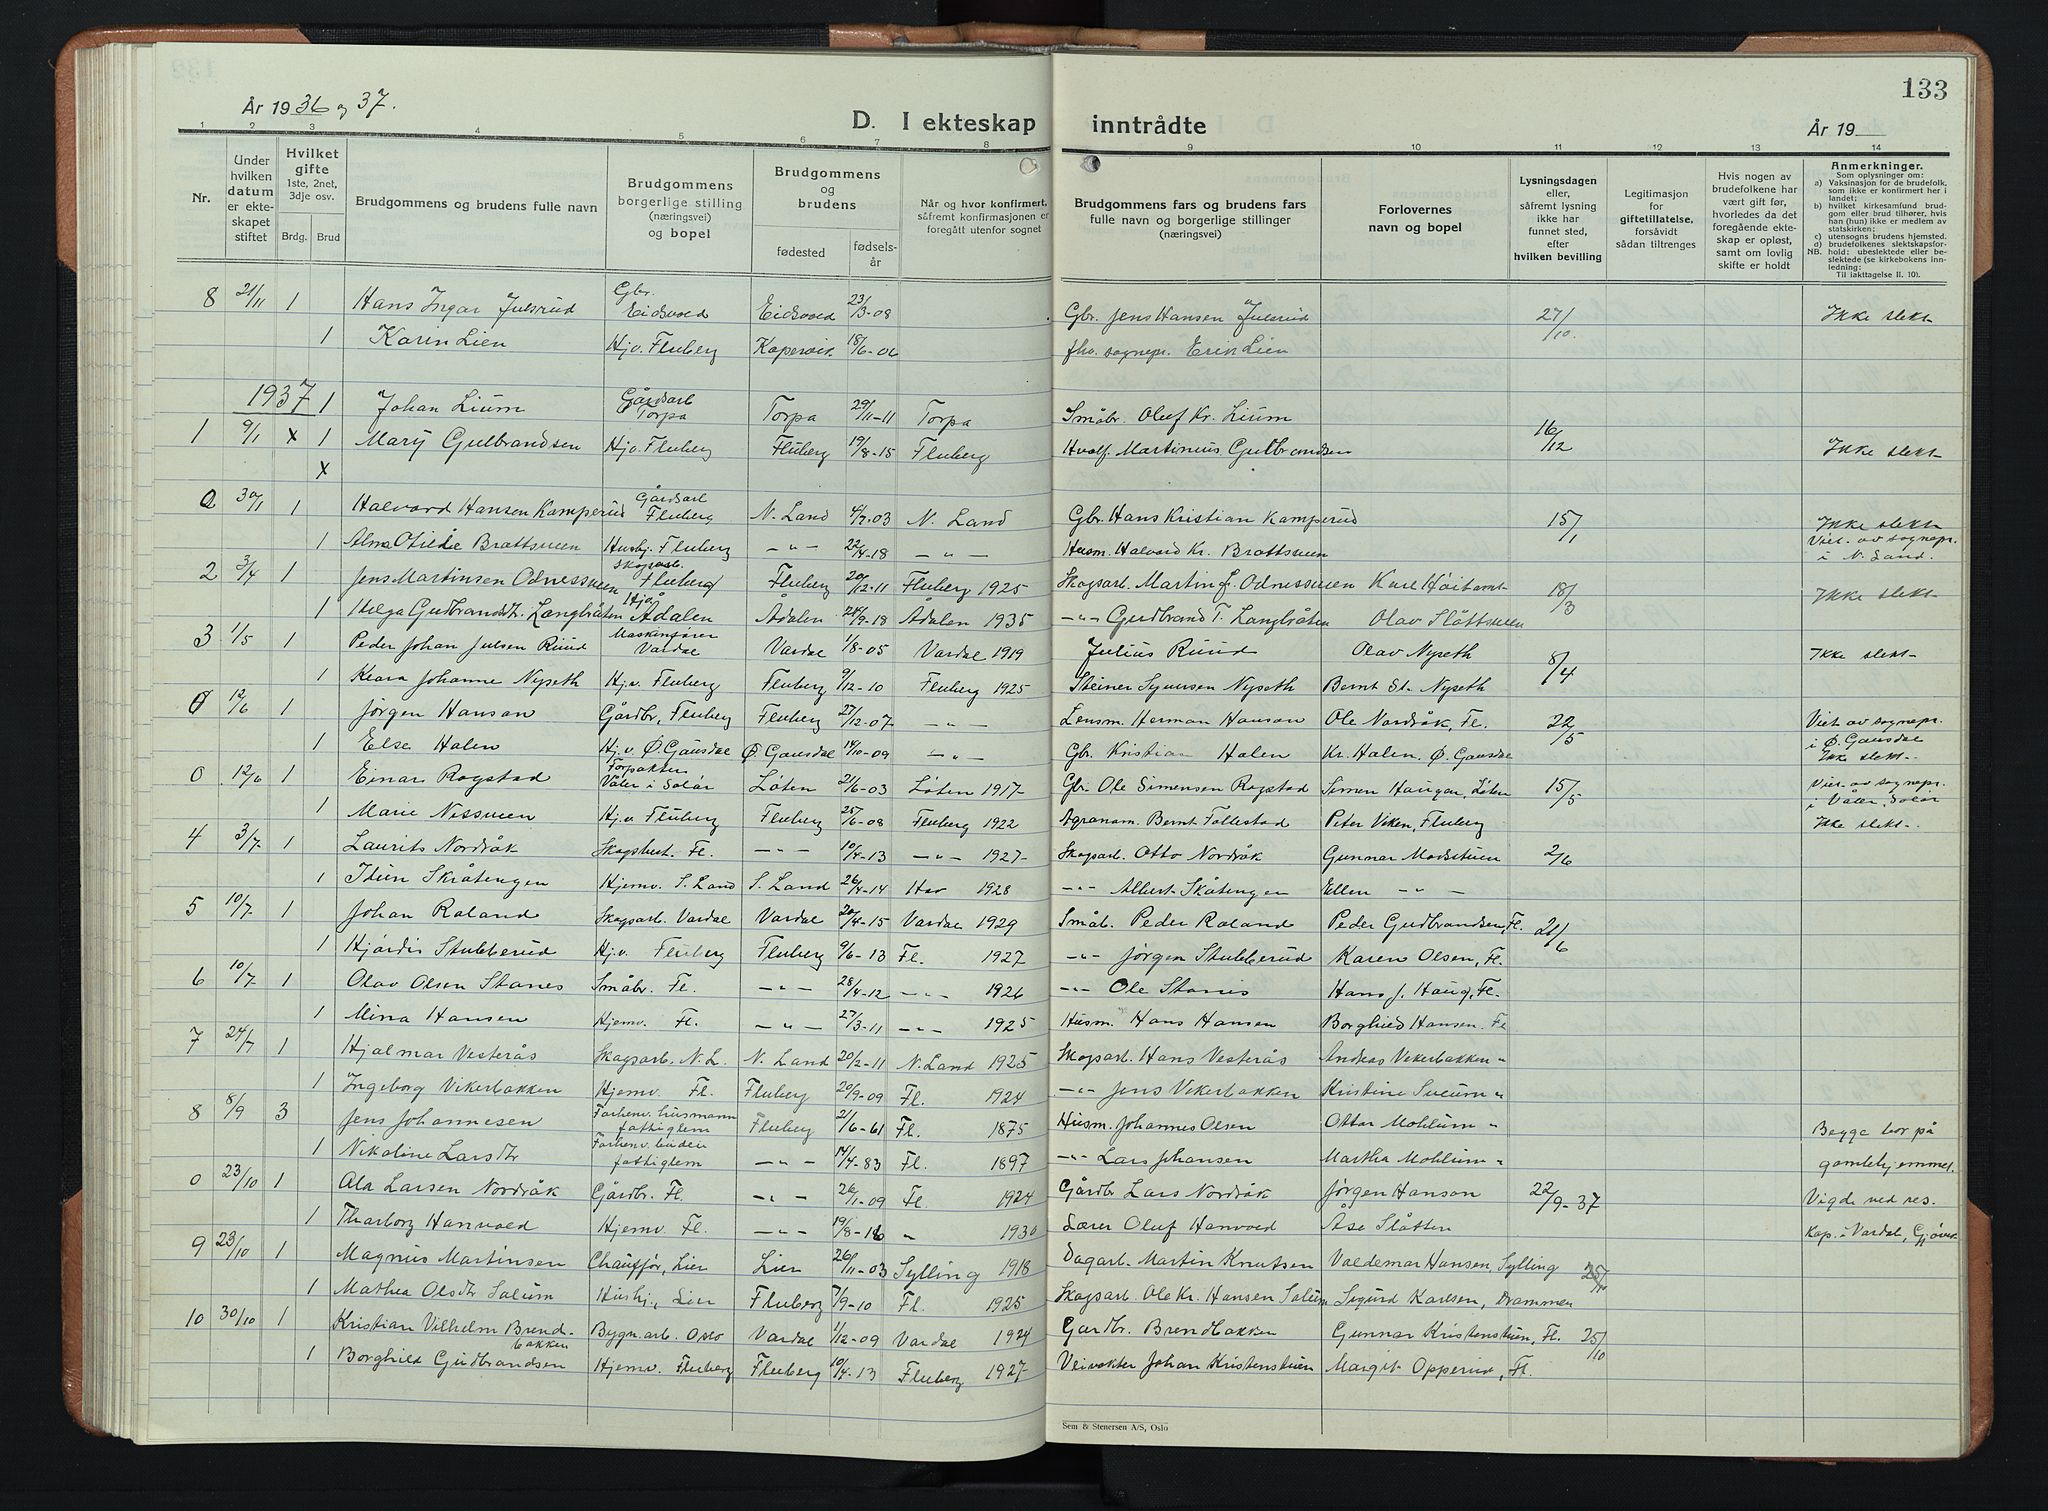 133
År 1936 og 37.
D. I ekteskap inntrådte
År 19
1 2 3 4 5 6 7 8 9 10 11 12 13 14
Nr.
Under hvilken datum er ekteskapet stiftet
Hvilket gifte 1ste, 2net, 3dje osv.
Brdg. Brud
Brudgommens og brudens fulle navn
Brudgommens borgerlige stilling (næringsvei) og bopel
Brudgommens og brudens
fødested
fødselsår
Når og hvor konfirmert, såfremt konfirmasjonen er foregått utenfor sognet
Brudgommens fars og brudens fars fulle navn og borgerlige stillinger (næringsvei)
Forlovernes navn og bopel
Lysningsdagen eller, såfremt lysning ikke har funnet sted, efter hvilken bevilling
Legitimasjon for giftetillatelse, forsåvidt sådan tiltrenges
Hvis nogen av brudefolkene har vært gift før, hvorledes da det foregående ekteskap er opløst, samt om lovlig skifte er holdt
Anmerkninger.
Som oplysninger om:
a) Vaksinasjon for de brudefolk, som ikke er konfirmert her i landet;
b) hvilket kirkesamfund brudgom eller brud tilhører, hvis han (hun) ikke er medlem av statskirken;
c) utensogns brudens hjemsted.
d) brudefolkenes slektskapsforhold: ubeslektede eller beslektede (se kirkebokens innledning:
NB. Til iakttagelse II. 10).
8 21/11 1 Hans Ingar Julsrud Gbr. Eidsvold Eidsvold 23/3-08 Gbr. Jens Hansen Julsrud 27/10. Ikke slekt
1 Karin Lien Hjv. Fluberg Kopervik 18/6-06 fhv. sognepr. Erik Lien
1937 1 Johan Lium Gårdsarb Torpa Torpa 29/11-11 Torpa Småbr. Oluf Kr. Lium
1 9/1 x 1 Mary Gulbrandsen Hjv. Fluberg Fluberg 19/8-15 Fluberg Martinius Gulbrandsen 16/12 Ikke slekt
x
0 30/1 1 Halvord Hansen Kamperud Gårdsarb Fluberg N. Land 4/7-03 N. Land Gbr. Hans Kristian Kamperud 15/1 Ikke slekt
1 Alma Otilde Brattsveen Hushj. Fluberg -"- 22/4-18 -"- Husm. Halvard Kr. Brattsveen Viet av sognepr. i N. Land.
2 3/4 1 Jens Martinsen Odnessveen Skogsarb. Fluberg Fluberg 20/12-11 Fluberg 1925 Skogsarb. Martin J. Odnessveen Kare Høitomt 18/3 Ikke slekt
1 Helga Gudbrandsdtr. Langbråten Ådalen Ådalen 24/9-18 Ådalen 1935 -"- Gudbrand T. Langbråten Olav Slåttsveen
3 1/5 1 Peder Johan Julsen Ruud Maskinfører Vardal Vardal 1/8-05 Vardal 1919 Julius Ruud Olav Nyseth 8/4 Ikke slekt
1 Klara Johanne Nyseth Hj.v. Fluberg Fluberg 9/12-10 Fluberg 1925 Steiner Syversen Nyseth Bernt St. Nyseth
0 12/6 1 Jørgen Hanson Gårdbr, Fluberg Fluberg 27/12-07 -"- Lensm. Herman Hanson Ole Nordråk, Fl. 22/5 Viet av sognepr. i Ø. Gausdal
1 Else Holen Hj.v. Ø. Gausdal Ø. Gausdal 14/10-09 -"- Gbr. Kristian Holen Kr. Holen, Ø. Gausdal Ikke slekt
0 12/6 1 Einar Rogstad Forpakter Våler i Solør Løten 21/6-03 Løten 1917 Gbr. Ole Simensen Rogstad Simen Haugen, Løten 15/5 Viet av sognepr. i Våler, Solør
1 Marie Nissveen Hj.v. Fluberg Fluberg 25/6-08 Fluberg 1922 Agronom. Bernt Follestad Peter Viken, Fluberg Ikke slekt
4 3/7 1 Laurits Nordråk Skogshut. Fl. -"- 10/4-13 -"- 1927 Skogsarb. Otto Nordråk Gunnar Modstuen 2/6
1 Idun Skråtengen Hjemv. S. Land S. Land 26/4-14 Hov 1928 -"- Albert Skåtengen Ellen -"-
5 10/7 1 Johan Roland Skogsarb. Vardal Vardal 20/4-15 Vardal 1929 Småb. Peder Roland Peder Gudbrandsen, Fl. 21/6
1 Hjørdis Stubberud Hj.v. Fluberg Fluberg 9/6-13 Fl. 1927 -"- Jørgen Stubberud Karen Olsen, Fl.
6 10/7 1 Olav Olsen Stanes Småbr. Fl. -"- 28/4-12 -"- 1926 -"- Ole Stanes Hans J. Haug, Fl.
1 Mina Hansen Hjemv. Fl. -"- 27/3-11 -"- 1925 Husm. Hans Hansen Borghild Hansen. Fl
7 24/7 1 Hjalmar Vesterås Skogsarb. N.L. N. Land 20/2-11 N. Land 1925 Skogsarb. Hans Vesterås Andreas Vikerbakken "
1 Ingeborg Vikerbakken Hjemv. Fl. Fluberg 20/9-09 Fl. 1924 -"- Jens Vikerbakken Kristine Sveum "
8 8/9 3 Jens Johannesen Forhenv. husmann fattiglem Fluberg 21/6-61 Fl. 1875 Husm. Johannes Olsen Ottar Mohlum " Begge bor på
1 Nikoline Larsdtr Forhenv. budeie fattiglem -"- 14/4-83 Fl. 1897 -"- Lars Johansen Martha Mohlum " gamlehjemmet.
0 23/10 1 Ola Larsen Nordråk Gårdbr. Fl. -"- 26/1-09 Fl. 1924 Gårdbr. Lars Nordråk Jørgen Hanson 22/9-37 Vigde ved res.
1 Thorborg Hanvold Hjemv. Fl. -"- 19/8-16 " 1930 Lærer Oluf Hanvold Åse Slåtten Kap. i Vardal, Gjøvik
9 23/10 1 Magnus Martinsen Chauffør, Lier Lier 26/11-03 Sylling 1918 Dagarb. Martin Knutsen Valdemar Hansen, Sylling 25/10
1 Mathea Olsdtr Solum Hushj., Lier Fluberg 7/9-10 Fl. 1925 Skogsarb. Ole Kr. Hansen Solum Sigurd Karlsen, Drammen
10 30/10 1 Kristian Vilhelm Brendbakken Bygn.arb. Oslo Vardal 1/12-09 Vardal 1924 Gardbr. Brendbakken Gunnar Kristenstuen, Fl. 25/10
1 Borghild Gudbrandsen Hjemv. Fluberg Fluberg 10/4-13 Fluberg 1927 Veivokter Johan Kristenstuen Margit Opperud, Fl.
Sem & Stenersen A/S, Oslo